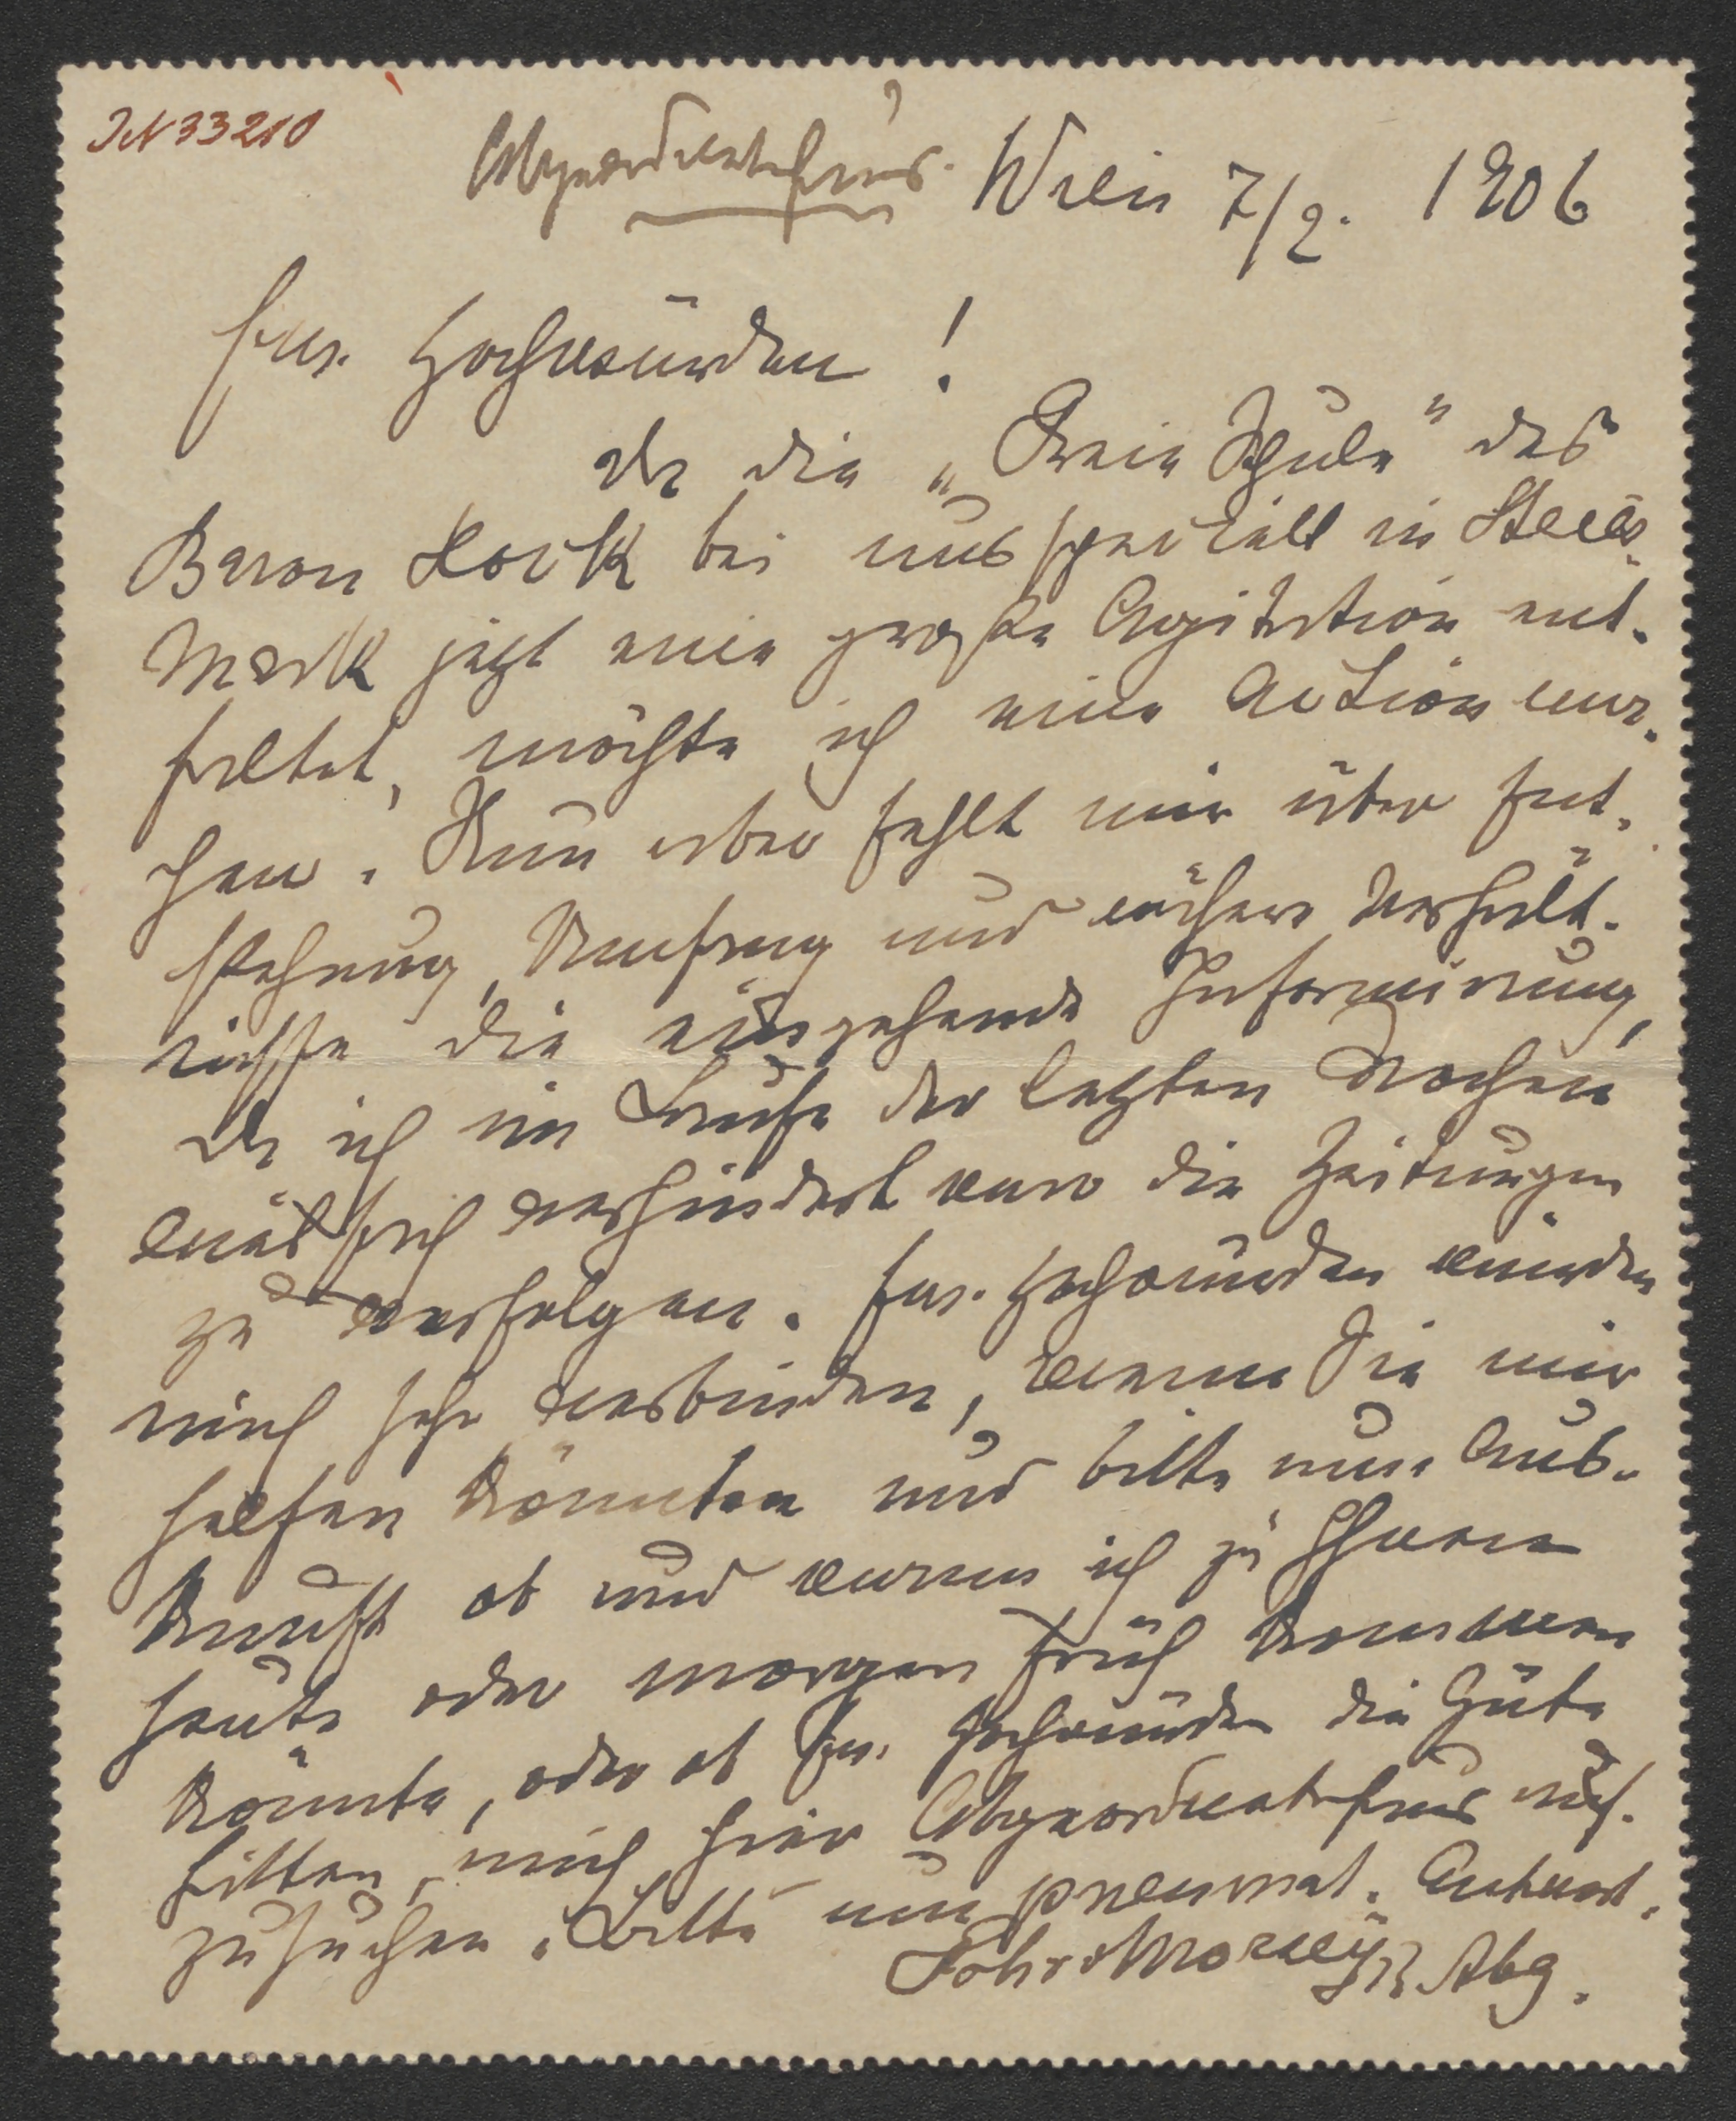 JN 33210
Abgeordnetenhaus. Wien 7/2. 1906
Euer Hochwürden!
Da die „Freie Schule" des
Baron Hock bei uns speciell in Steier-
mark jetzt eine große Agitation ent-
faltet, möchte ich eine Action ma-
chen. Nun aber fehlt mir über Ent-
stehung, Umfang und nähere Verhält-
nisse die eingehende Informirung,
da ich im Laufe der letzten Wochen
verhindert war die Zeitungen
zu verfolgen. Euer Hochwürden würden
mich sehr verbinden, wenn Sie mir
helfen könnten und bitte um Aus-
kunft ob und wann ich zu Ihnen
heute oder morgen früh kommen
könnte, oder ob Eu. Hochwürden die Güte
hätten, mich hier Abgeordnetenhaus auf-
zusuchen. Bitte um pneumat. Antwort.
Frhr v Morsey Abg.